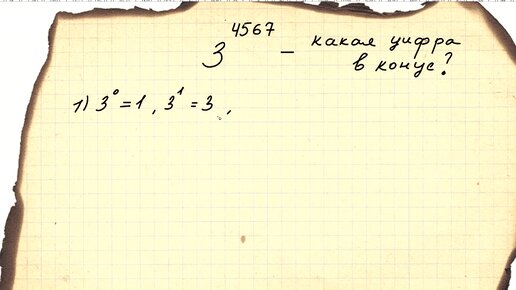 3^4567 – какая цифра
в конце?
1) 3^0 = 1, 3^1 = 3,